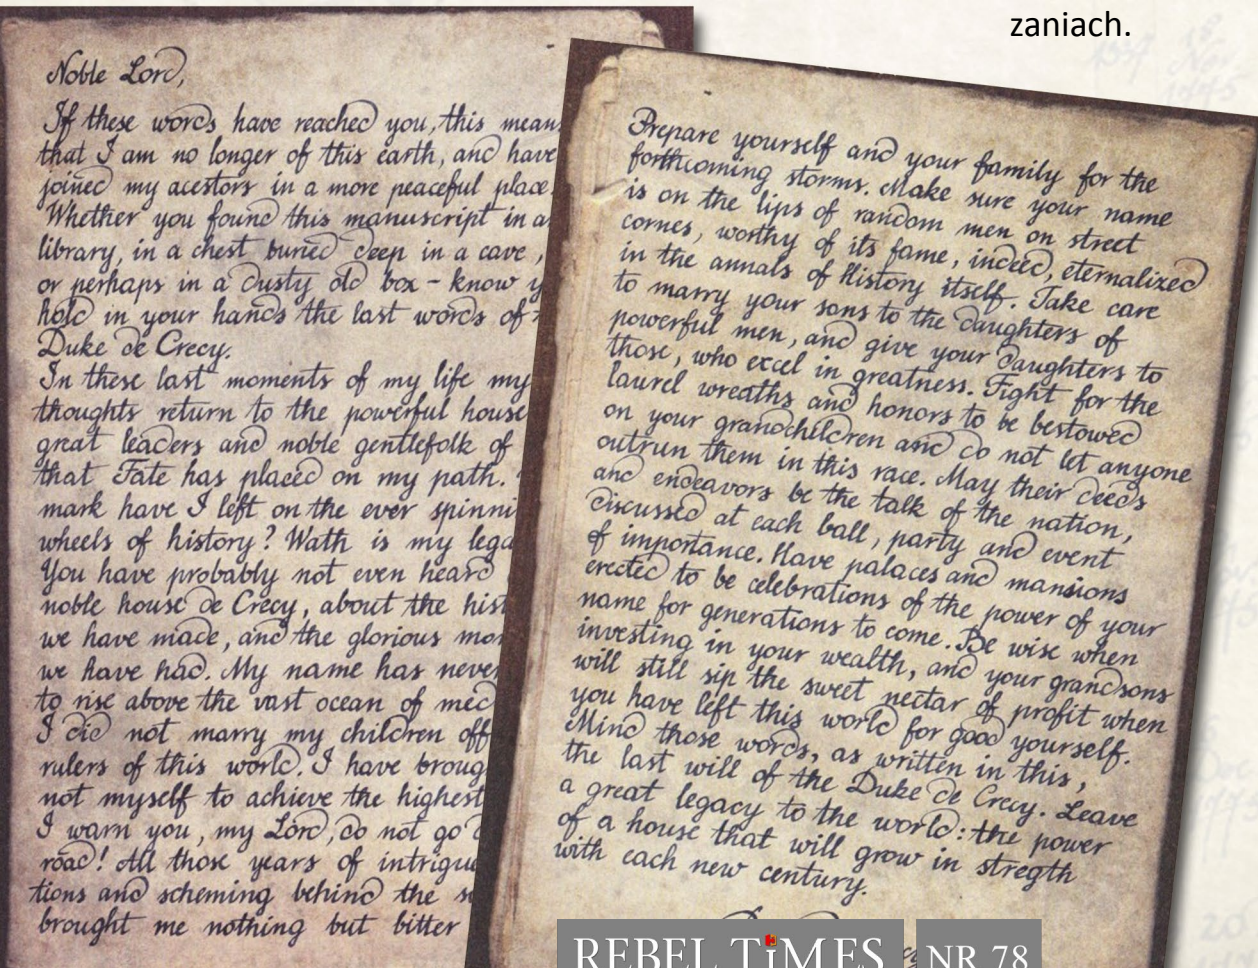 zaniach.
Noble Lord,
If these words have reached you, this mean
that I am no longer of this earth, and have
joined my acestors in a more peaceful place.
Whether you found this manuscript in a
library, in a chest buried deep in a cave ,
or perhaps in a dusty old box - know y
hold in your hands the last words of
Duke de Crecy.
In these last moments of my life my
thoughts return to the powerful house
great leaders and noble gentlefolk of
that Fate has placed on my path.
mark have I left on the ever spinni
wheels of history? Wath is my lega
You have probably not even heard
noble house de Crecy, about the hist
we have made, and the glorious mo
we have had. My name has never
to rise above the vast ocean of med
I did not marry my children off
rulers of this world. I have broug
not myself to achieve the highest
I warn you , my Lord, do not go d
road! All those years of intrigue
tions and scheming behind the s
brought me nothing but bitter
Prepare yourself and your family for the
forthcoming storms. Make sure your name
is on the lips of random men on street
cornes, worthy of its fame, indeed, eternalized
in the annals of History itself. Take care
to marry your sons to the daughters of
powerful men, and give your daughters to
those, who excel in greatness. Fight for the
laurel wreaths and honors to be bestowed
on your grandchildren and do not let anyone
outrun them in this race. May their deeds
and endeavors be the talk of the nation,
discussed at each ball, party and event
of importance. Have palaces and mansions
erected to be celebrations of the power of your
name for generations to come. Be wise when
investing in your wealth, and your grandsons
will still sip the sweet nectar of profit when
you have left this world for good yourself.
Mind those words, as written in this,
the last will of the Duke de Crecy. Leave
a great legacy to the world: the power
of a house that will grow in stregth
with each new century.
REBEL TiMES NR 78